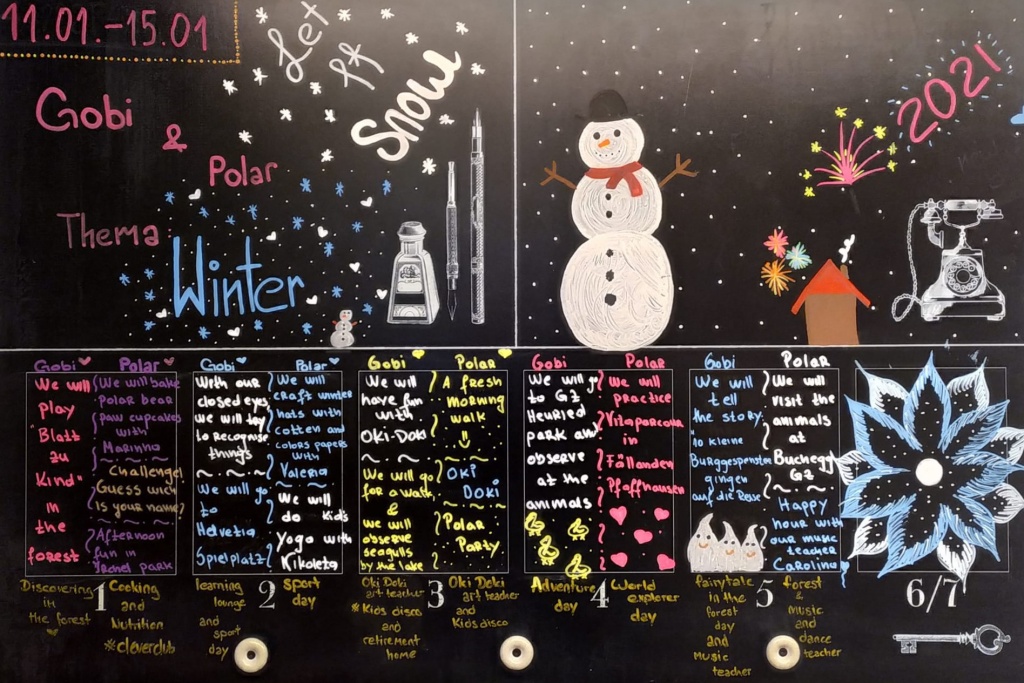 11.01.-15.01
Let
It
Snow
Gobi
&
Polar
Thema:
Winter
2021
Gobi
We will
play
"Blatt
zu
Kind"
in
the
forest
Polar
We will bake
polar bear
paw cupcakes
with
Marinna
~ ~ ~
Challenge!
Guess wich
is your name?
~ ~ ~
Afternoon
fun in
park
Discovering
in
the forest
1
Cooking
and
Nutrition
#cleverclub
Gobi
With our
closed eyes
we will try
to recognise
things
~ ~ ~
We will go
to
Helvetia
Spielplatz!
Polar
We will
craft winter
hats with
cotten and
colors papers
with
Valeria
~ ~ ~
We will
do Kids
Yoga with
Kikoleta
learning
lounge
and
sport
day
2
sport
day
Gobi
We will
have fun
with
OKI-DOKI
~ ~
We will go
for a walk
&
we will
observe
seagulls
by the lake
Polar
A fresh
morning
walk
OKI
DOKI
~ ~ ~
Polar
Party
Oki Doki
art teacher
#Kids disco
and
retirement
home
3
Oki Doki
art teacher
and
Kids disco
Gobi
We will go
to GZ
Heuried
park and
observe
at the
animals
Polar
We will
practice
Vitaparcour
in
Fällanden
Pfaffhausen
Adventure
day
4
World
explorer
day
Gobi
We will
tell
the story:
10 kleine
Burggespenster
gingen
auf die Reise
Polar
We will
visit the
animals
at
Buchegg
GZ
~ ~
Happy
hour with
our music
teacher
Carolina
fairytale
in the
forest
day
and
Music
teacher
5
forest
&
music
and
dance
teacher
6/7